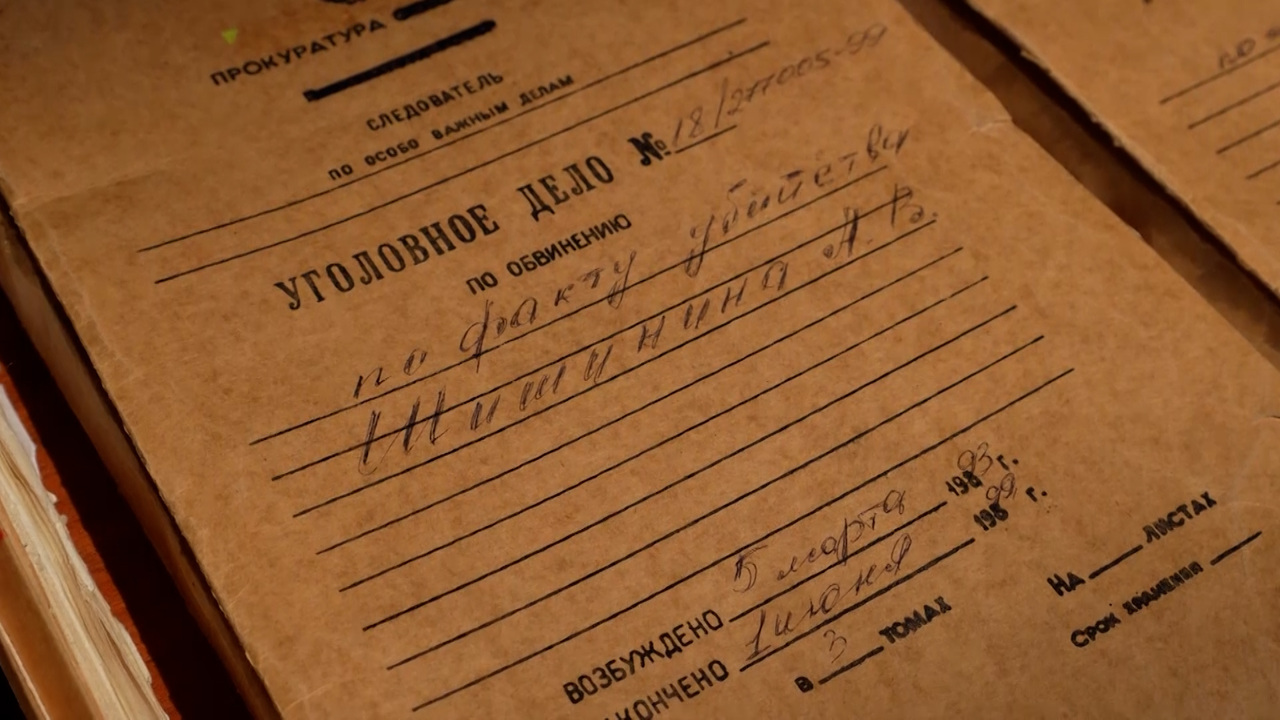 ПРОКУРАТУРА
СЛЕДОВАТЕЛЬ
ПО ОСОБО ВАЖНЫМ ДЕЛАМ
УГОЛОВНОЕ ДЕЛО № 18/277005-99
ПО ОБВИНЕНИЮ
по факту убийства
Шишунина А. В.
ВОЗБУЖДЕНО 5 марта 1993 г.
1 июня 1999 г.
В 3 ТОМАХ
НА ЛИСТАХ
СРОК ХРАНЕНИЯ
по